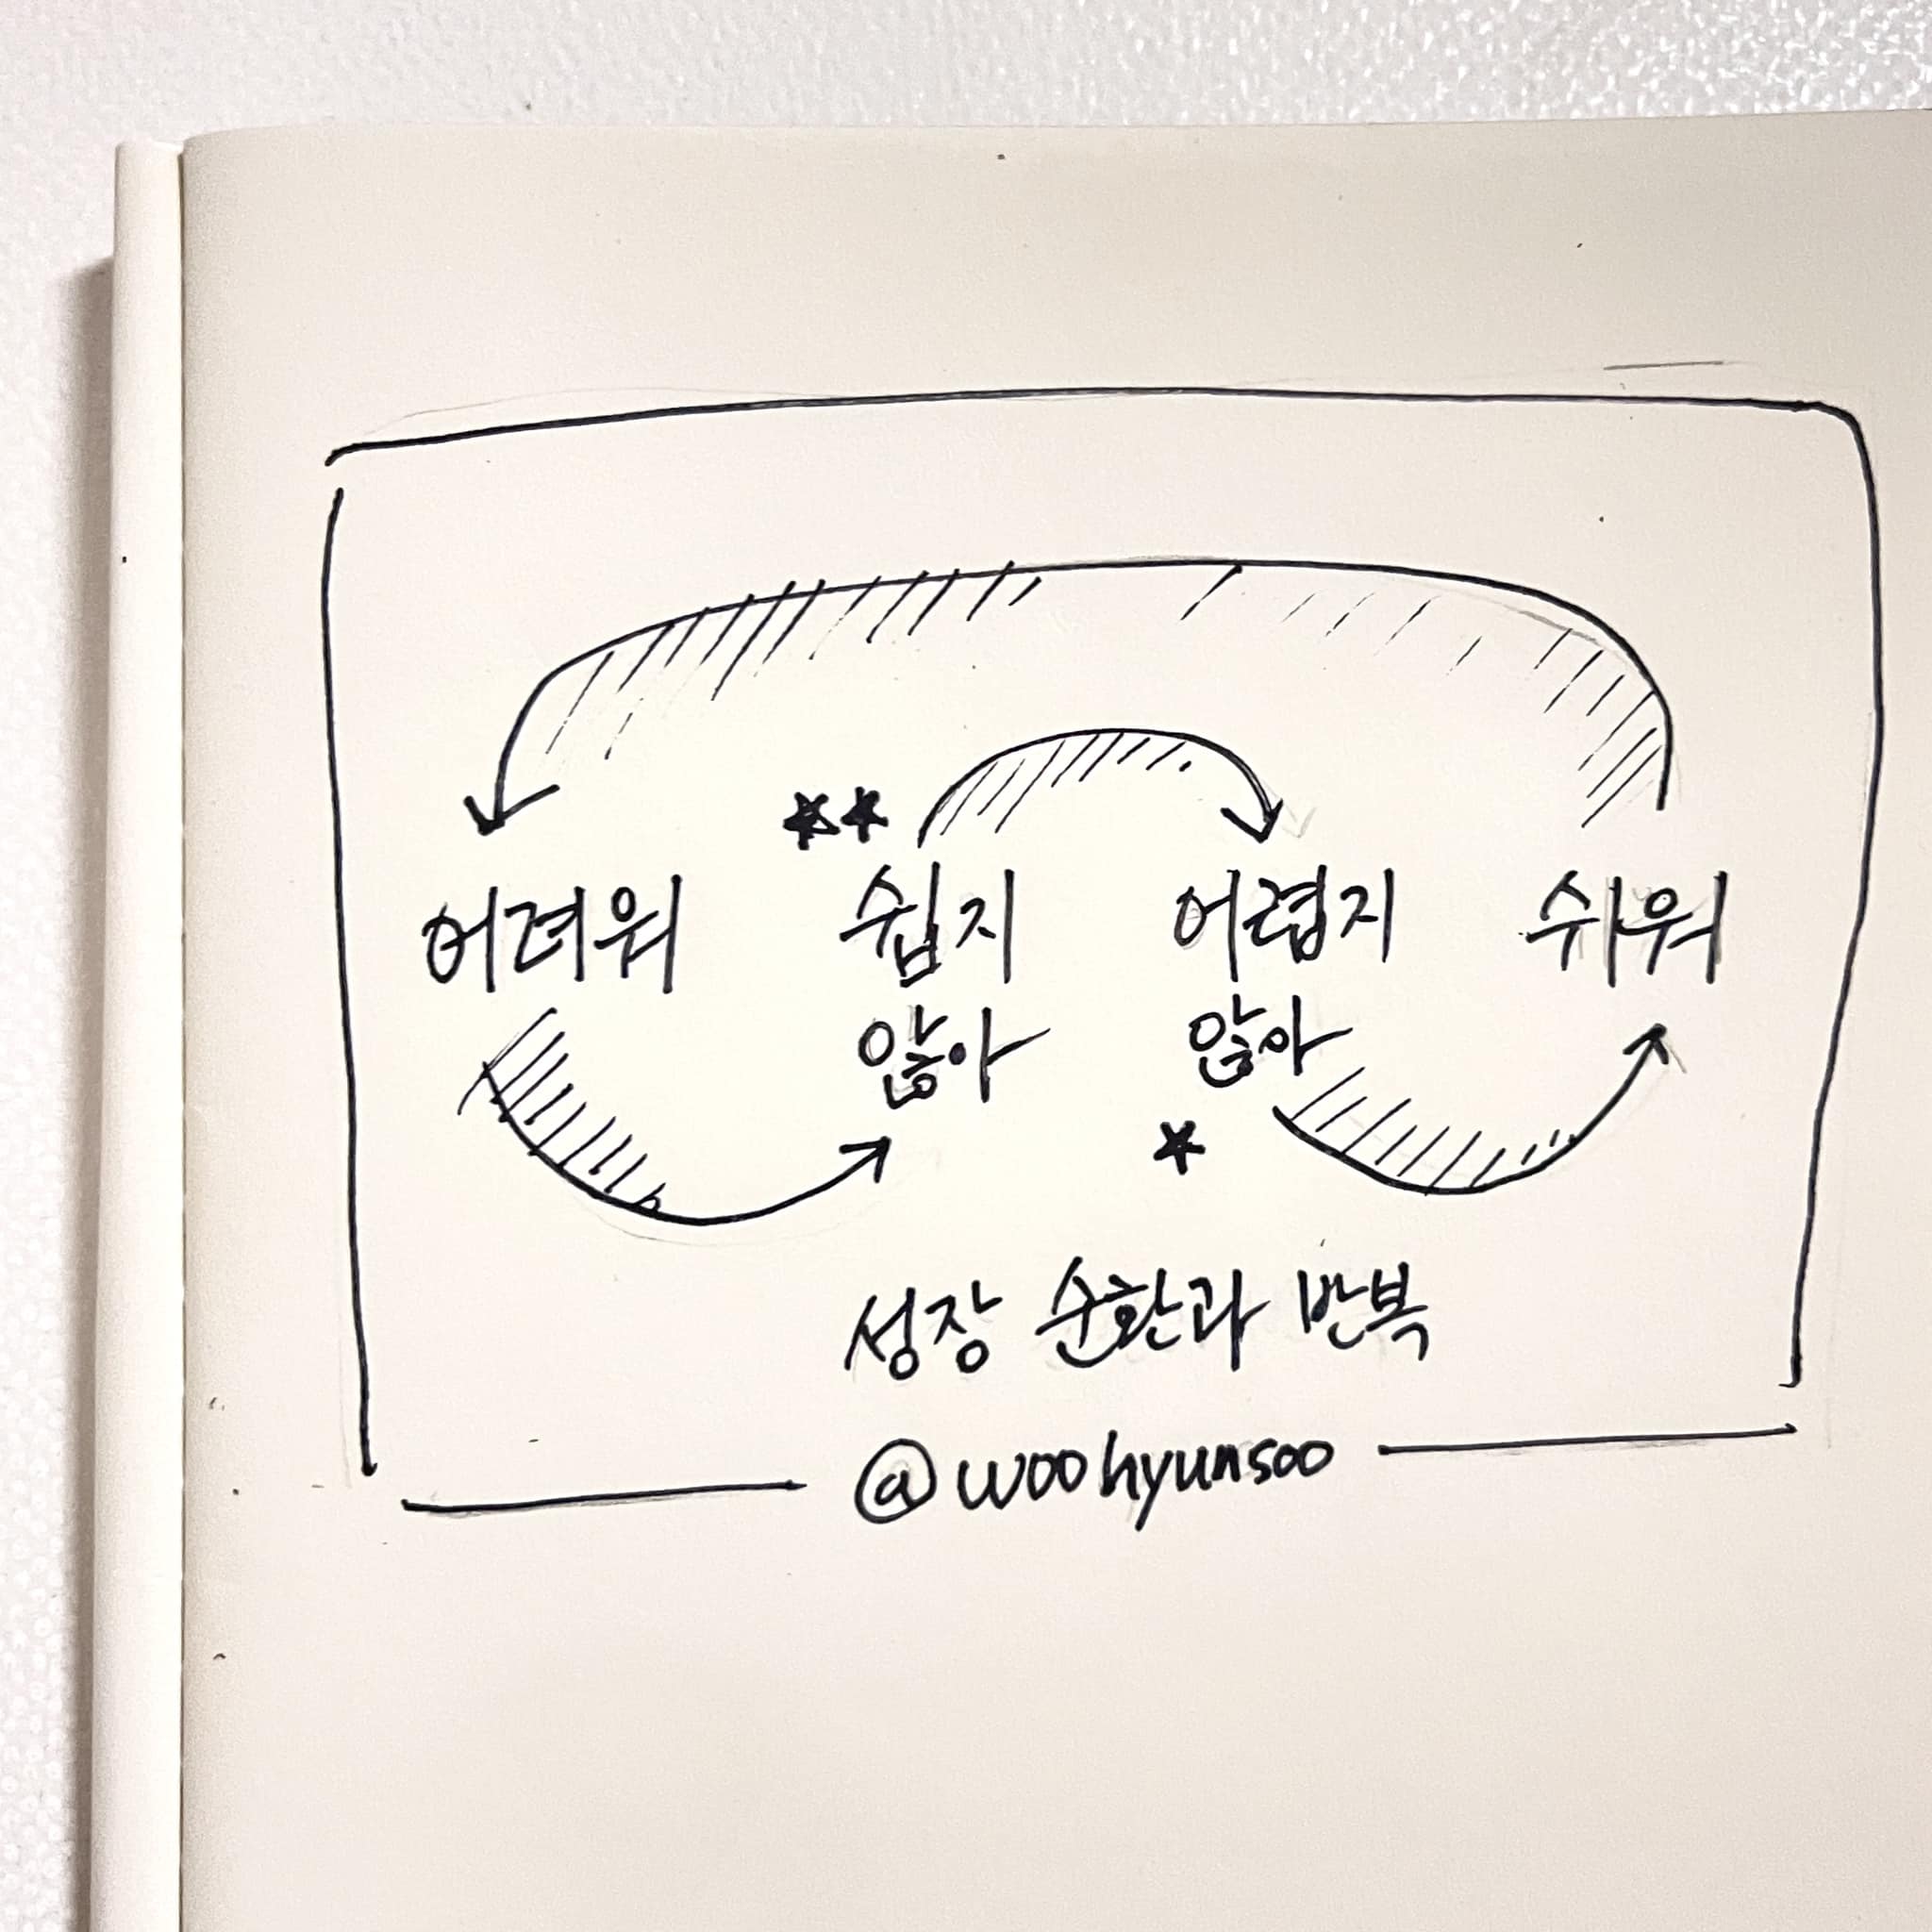 어려워 쉽지 어렵지 쉬워
않아 않아
성장 순환과 반복
@woohyunsoo